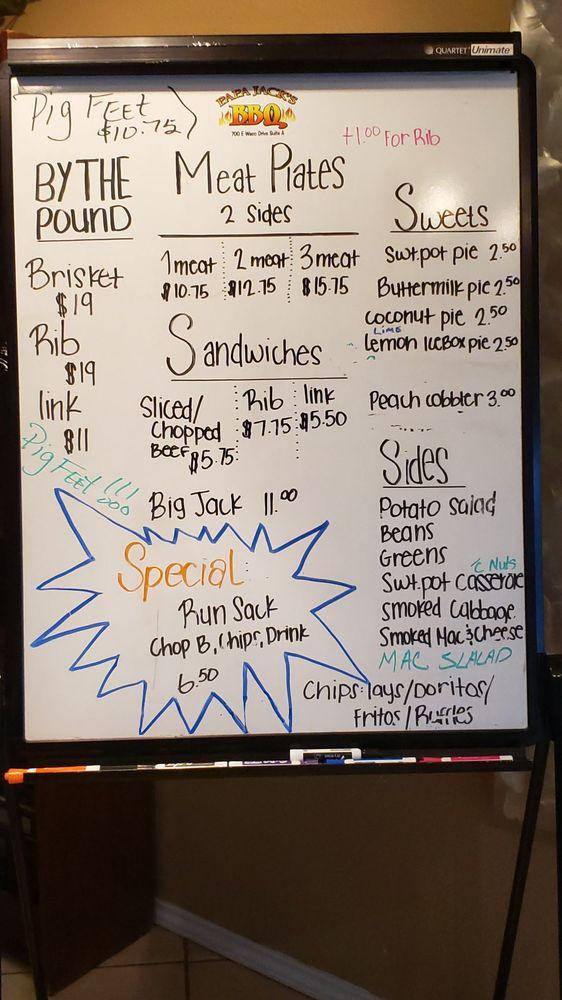 QUARTET Unimate
Pig FEET
$10.75
PAPA JACK'S
BBQ
700 E Waco Drive Suite A
+1.00 For Rib
BY THE
POUND
Brisket
$19
Rib
$19
link
$11
Pig FEET !!!
Meat Plates
2 sides
1 meat 2 meat 3 meat
$10.75 $12.75 $15.75
Sandwiches
Sliced/ Rib link
Chopped $7.75 $5.50
BEEF $5.75
Big Jack 11.00
Special
Run Sack
Chop B, Chips, Drink
6.50
Sweets
Swt.pot pie 2.50
Buttermilk pie 2.50
coconut pie 2.50
Lime
lemon IceBox pie 2.50
Peach cobbler 3.00
Sides
Potato Salad
Beans
Greens
c Nuts
Swt.pot Casserole
Smoked Cabbage
Smoked Mac & Cheese
MAC SLALAD
Chips: lays/Doritos/
Fritos/Ruffles